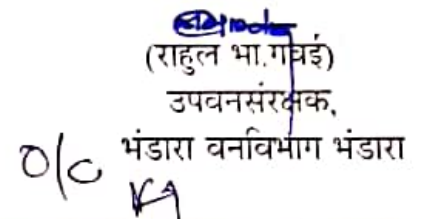 (राहुल भा.गवई)
उपवनसंरक्षक,
O/C भंडारा वनविभाग भंडारा